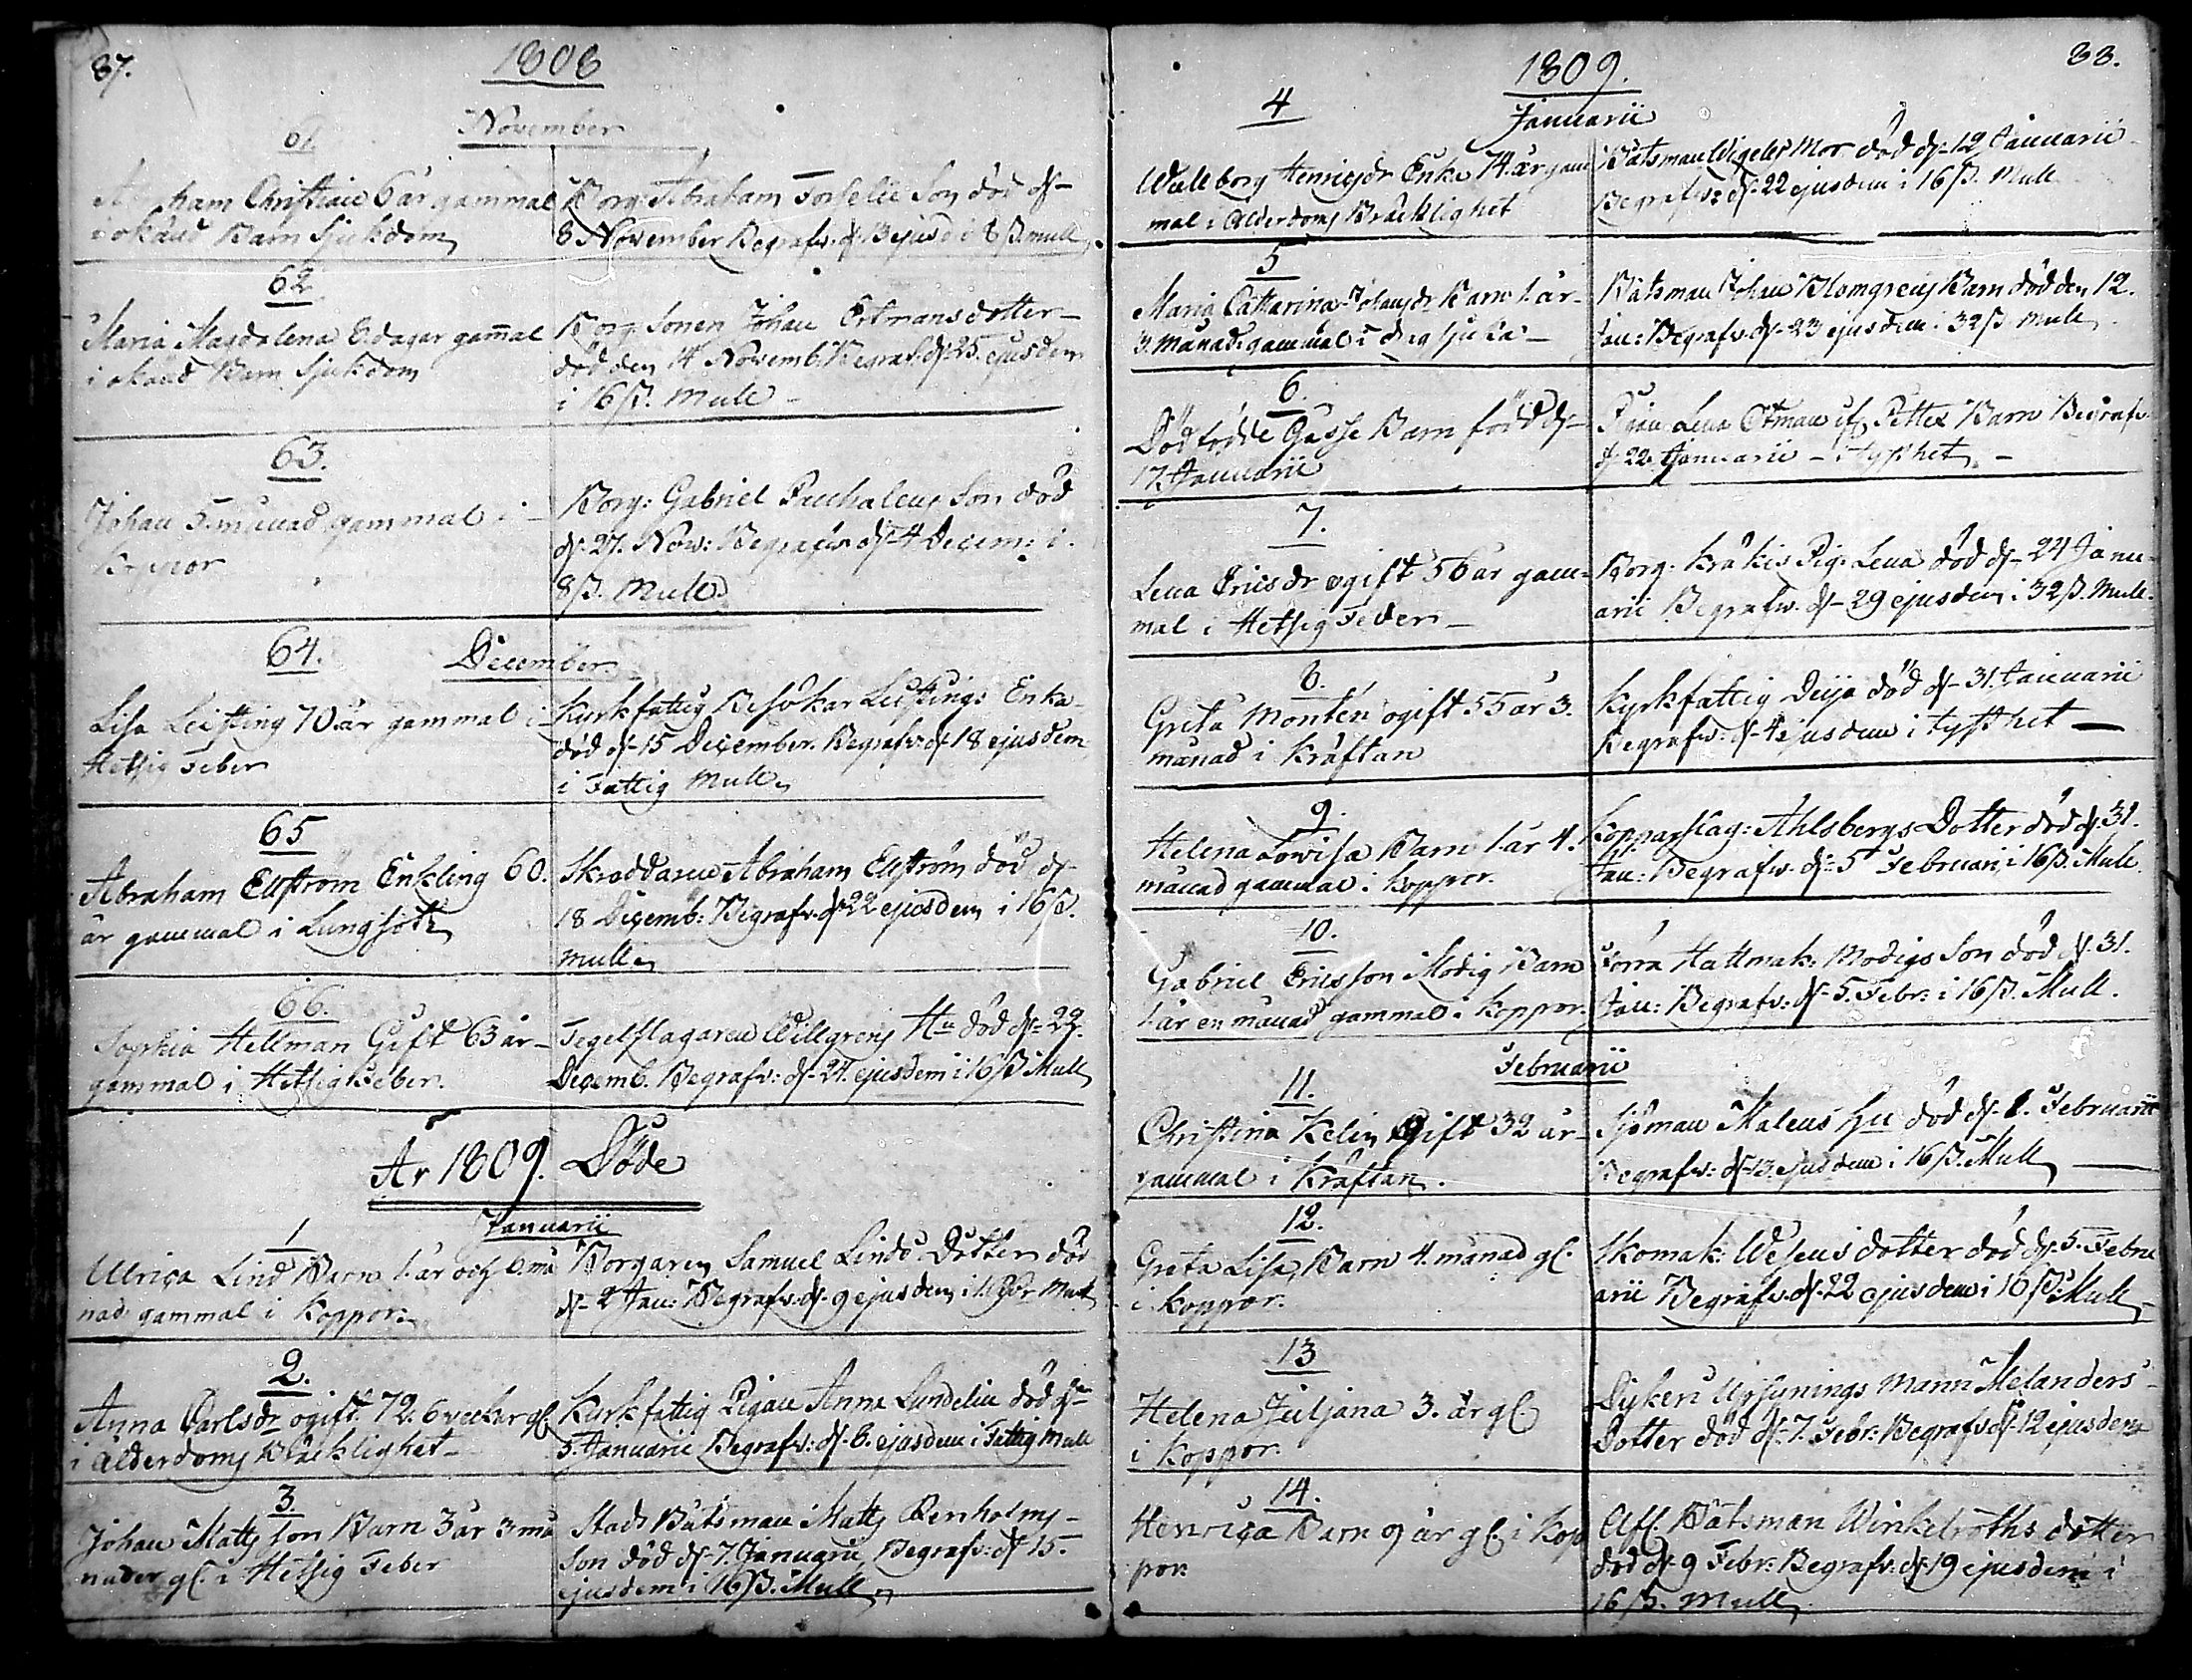 87.
1808
November
61.
Christian 6 år gammal
i okänd Barn Sjukdom
Borg: Abraham Forselii Son död d:
8 November Begrafv. d. 13 ejusd i 8 ß. mull
62
Maria Magdalena 8. dagar gam̄al
i okänd Barn Sjukdom
Borg Sonen Johan Ertmans dotter
död den 14 Novemb. Begraf. d. 25. ejusdem
i 16 ß. Mull
63.
Johan 5. månad gammal i
Koppor
Borg: Gabriel Son död
d. 27. Nov: Begrafv. d. 4 Decem: i
8 ß. Mull
64.
December
Lisa Leisting 70. år gammal i
Hetsig Feber
Kyrkfattig Besökar Leistings Enka
död d. 15 December. Begrafv: d. 18 ejusdem
i Fattig Mull
65
Abraham Ellström Enkling 60.
år gammal i Lungsot
Skräddaren Abraham Ellström död d.
18 Decemb: Begrafv. d. 22 ejusdem i 16 ß.
Mull
66.
Sophia Hellman Gift 63 år
gammal i Hetsig Feber.
Tegelslagaren Willgrens Hu död d. 22.
Decemb. Begrafv: d. 27. ejusdem i 16 ß Mull
År 1809. Döde
Januarii
1
Ulrica Lind Barn 1. år och 6. må
nad gammal i Koppor.
Borgaren Samuel Linds Dotter död
d. 2 Jan: Begrafv: d. 9 ejusdem i Mull
2.
Anna Carlsdr ogift. 72. 6 veckor gl.
i Ålderdoms Bräcklighet
Kyrkfattig Pigan Anna Lundelin död d.
5 Januarii Begrafv: d. 8. ejusdem i Fattig Mull
3.
Johan Matts son Barn 3 år 3 må
nader gl. i Hetsig Feber
Stads Båtsman Matts Renholms
Son död d. 7. Januarii Begrafv: d. 15.
ejusdem i 16 ß. Mull
88.
1809.
Januarii
4
Wallborg Henricsdr Enka 74. år gam
mal i Ålderdoms Bräcklighet
Båtsman Wigelts Mor död d. 12 Januarii
Begrafv: d. 22 ejusdem i 16 ß. Mull
5
Maria Catharina Johansdr Barn 1. år
3. Månad. gammal i
Båtsman Johan Blomgrens Barn död den 12.
Jan: Begrafv. d. 23 ejusdem i 32 ß Mull
6.
Dödfödde Gosse Barn född d.
17. Januarii
Pigan Lena Östman Barn Begrafv.
d. 22. Januarii i tysthet.
7.
Lena Ericsdr ogift 56 år gam
mal i Hetsig Feber
Borg. Kråkis Pig: Lena död d. 24 Janu
arii Begrafv. d. 29 ejusdem i 32 ß. Mull.
8.
Greta Montén ogift 55 år 3.
månad i Kräftan
Kyrkfattig död d. 31. Januarii
Begrafv: d. 4 ejusdem i tysthet
9.
Helena Lovisa Barn 1. år 4.
månad gammal i Koppor.
Kopparslag: Ahlsbergs Dotter död d. 31.
Jan: Begrafv. d. 5 Februarii i 16 ß. Mull.
10.
Gabriel Ericsson Modig Barn
1. år en månad gammal i Koppor.
Förra Hattmak: Modigs Son död d. 31.
Jan: Begrafv: d. 5. Febr: i 16 ß. Mull.
Februarii
11.
Christina Kelin Gift 32 år
gammal i Kräftan.
Sjöman Malens Hu död d. 1. Februarii
Begrafv: d. 13. ejusdem i 16 ß. Mull
12.
Greta Lisa Barn 4. månad gl.
i Koppor.
Skomak: Wesens dotter död d. 5. Febru
arii Begrafv. d. 22 ejusdem i 16 ß. Mull
13
Helena Juljana 3. år gl.
i Koppor.
Dykeri Uppsynings Mann Melanders
Dotter död d. 7. Febr: Begrafv d. 12 ejusdem
14.
Henrica Barn 9 år gl. i Kop
por.
Afl. Båtsman Winkelroths dotter
död d. 9 Febr: Begrafv: d. 19 ejusdem i
16 ß. Mull